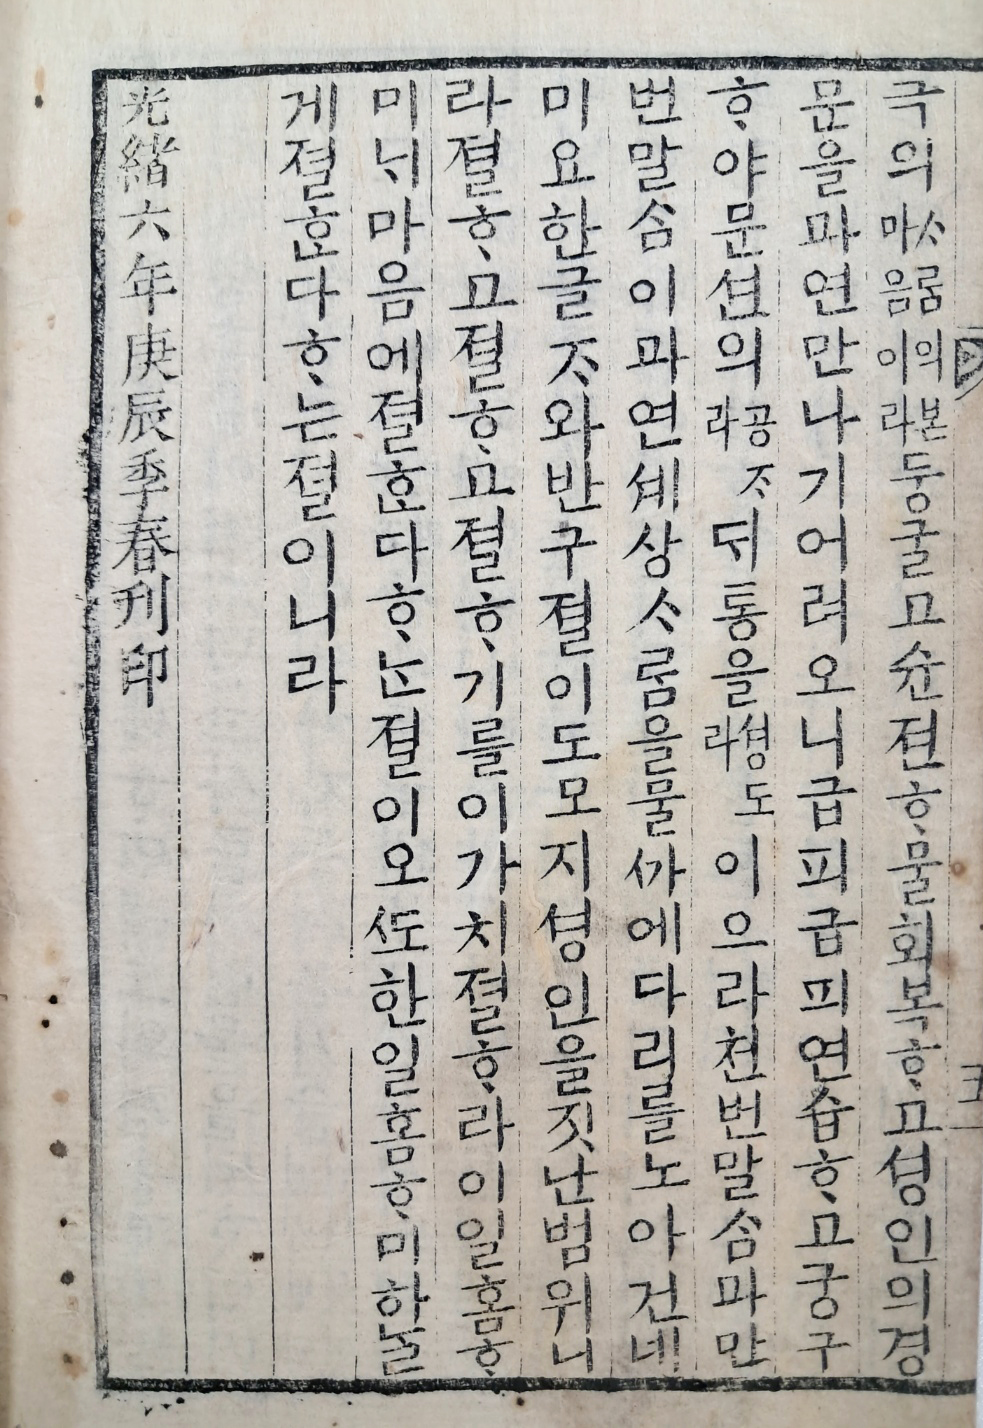 극의ᄉᆞ룸의본마음이라둥굴고슌젼ᄒᆞ물회복ᄒᆞ고셩인의경
문을파연만나기어려오니급피급피연습ᄒᆞ고궁구
ᄒᆞ야문션의공ᄌᆞ라ᄃᆡ통을셩도라이으라천번말ᄉᆞᆷ파만
번말ᄉᆞᆷ이파연셰상ᄉᆞ룸을물ᄭᅡ에다리를노아건네
미요한글ᄌᆞ와반구졀이도모지셩인을짓난범위니
라졀ᄒᆞ고졀ᄒᆞ고졀ᄒᆞ기를이가치졀ᄒᆞ라이일홈ᄒᆞ
미ᄂᆡ마음에졀ᄒᆞᆫ다ᄒᆞ는졀이오ᄯᅩ한일홈ᄒᆞ미하ᄂᆞᆯ
게졀ᄒᆞᆫ다ᄒᆞ는졀이니라
光緖六年庚辰季春刊印